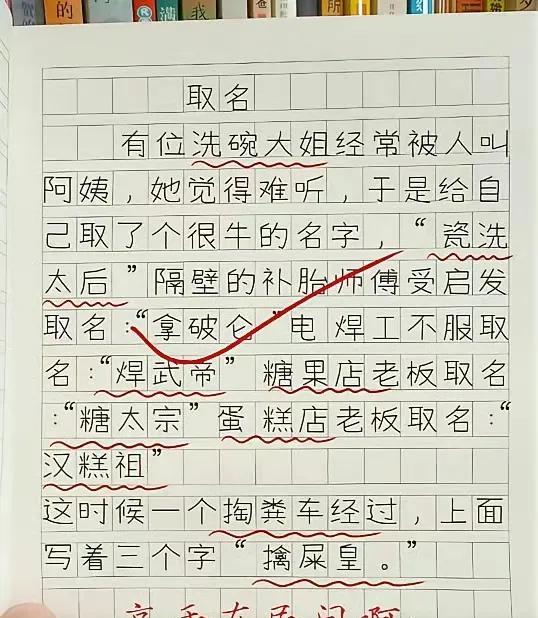 取名
有位洗碗大姐经常被人叫
阿姨，她觉得难听，于是给自
己取了个很牛的名字，“瓷洗
太后”隔壁的补胎师傅受启发
取名：“拿破仑”电焊工不服取
名：“焊武帝”糖果店老板取名
：“糖太宗”蛋糕店老板取名：“
汉糕祖”
这时候一个掏粪车经过，上面
写着三个字“擒屎皇。”
高手在民间啊